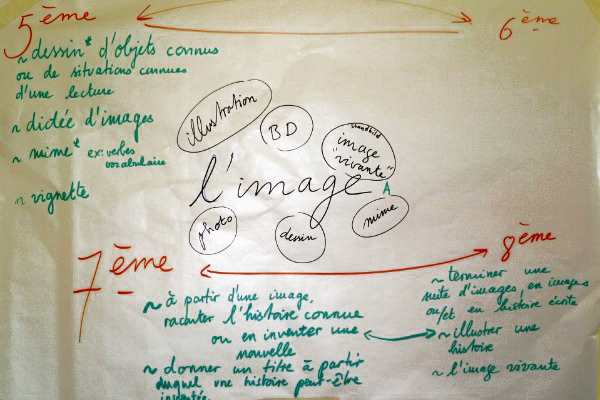 5ème
6ème
~ dessin* d'objets connus
ou de situations connues
d'une lecture
~ dictée d'images
~ mime* ex: verbes
vocabulaire
~ vignette
illustration
BD
standbild
image
"vivante"
l'image
A
photo
dessin
mime
7ème
8ème
~ à partir d'une image,
raconter l'histoire connue
ou en inventer une
nouvelle
~ donner un titre à partir
duquel une histoire peut-être
inventée.
~ terminer une
suite d'images, en images
ou/et en histoire écrite
~ illustrer une
histoire
~ l'image vivante